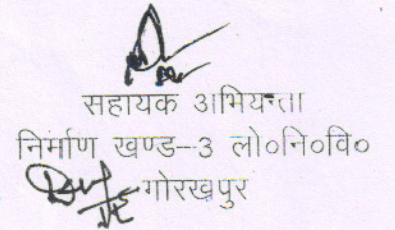 सहायक अभियन्ता
निर्माण खण्ड-3 लो०नि०वि०
गोरखपुर